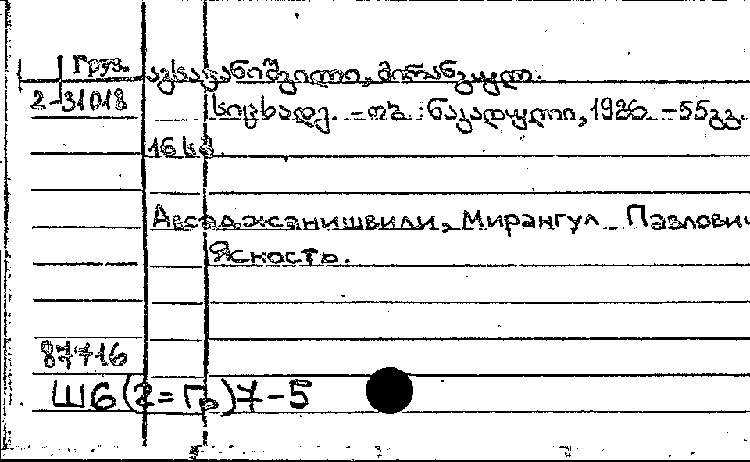 Груз.
ავსაჯანიშვილი, მირანგულ.
2-31018
სიცხადე. - თბ. : ნაკადული, 1986. - 55გვ.
16 სმ
Авсаджанишвили, Мирангул Павлович
Ясность.
87716
Ш6(2=Гр)7-5